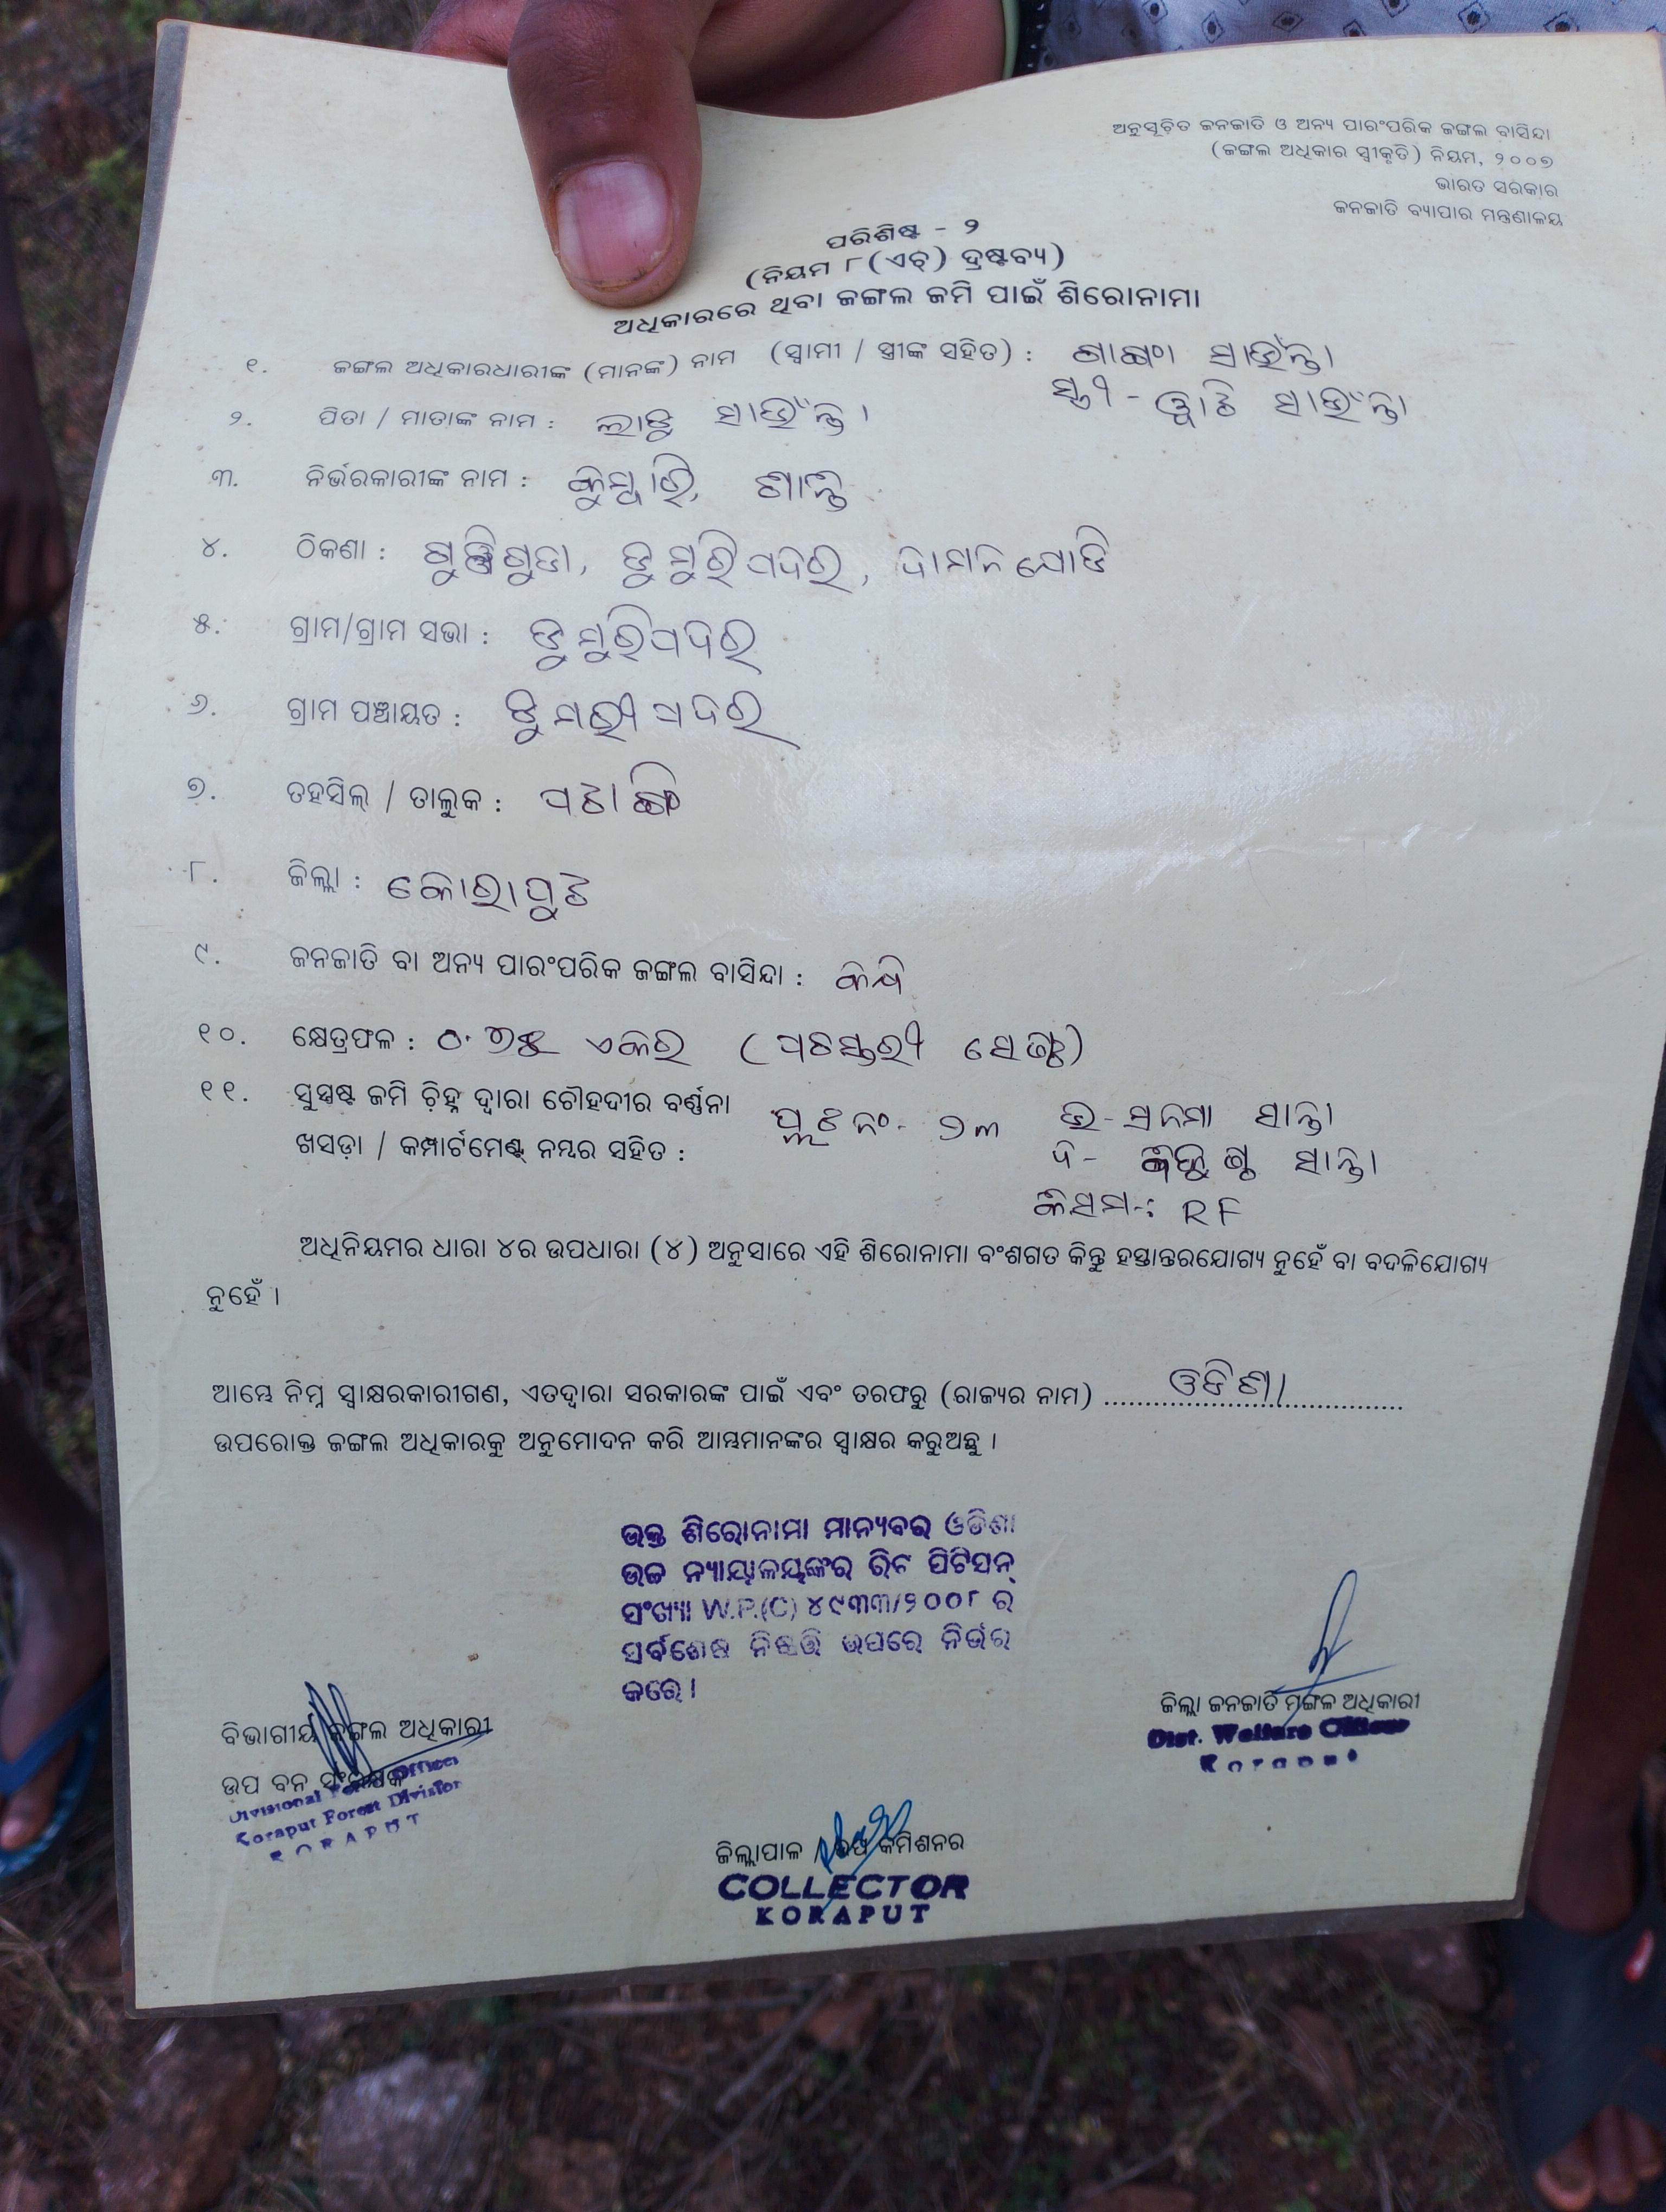 ଅନୁସୂଚିତ ଜନଜାତି ଓ ଅନ୍ୟ ପାରଂପରିକ ଜଙ୍ଗଲ ବାସିନ୍ଦା
(ଜଙ୍ଗଲ ଅଧିକାର ସ୍ୱୀକୃତି) ନିୟମ, ୨୦୦୭
ଭାରତ ସରକାର
ଜନଜାତି ବ୍ୟାପାର ମନ୍ତ୍ରଣାଳୟ
ପରିଶିଷ୍ଟ - ୨
(ନିୟମ ୮(ଏଚ୍) ଦ୍ରଷ୍ଟବ୍ୟ)
ଅଧିକାରରେ ଥିବା ଜଙ୍ଗଲ ଜମି ପାଇଁ ଶିରୋନାମା
୧. ଜଙ୍ଗଲ ଅଧିକାରଧାରୀଙ୍କ (ମାନଙ୍କ) ନାମ (ସ୍ୱାମୀ / ସ୍ତ୍ରୀଙ୍କ ସହିତ) :
୨. ପିତା / ମାତାଙ୍କ ନାମ :
୩. ନିର୍ଭରକାରୀଙ୍କ ନାମ :
୪. ଠିକଣା : ଡୁମୁରିପଦର, ଦାମନଯୋଡି
୫. ଗ୍ରାମ/ଗ୍ରାମ ସଭା : ଡୁମୁରିପଦର
୬. ଗ୍ରାମ ପଞ୍ଚାୟତ : ଡୁମରୀପଦର
୭. ତହସିଲ୍ / ତାଲୁକ : ପଟାଙ୍ଗି
୮. ଜିଲ୍ଲା : କୋରାପୁଟ
୯. ଜନଜାତି ବା ଅନ୍ୟ ପାରଂପରିକ ଜଙ୍ଗଲ ବାସିନ୍ଦା :
୧୦. କ୍ଷେତ୍ରଫଳ : ଏକର
୧୧. ସୁସ୍ପଷ୍ଟ ଜମି ଚିହ୍ନ ଦ୍ୱାରା ଚୌହଦୀର ବର୍ଣ୍ଣନା
ଖସଡ଼ା / କମ୍ପାର୍ଟମେଣ୍ଟ୍ ନମ୍ବର ସହିତ : ପ୍ଲଟ ନଂ-
କିସମ-: RF
ଅଧିନିୟମର ଧାରା ୪ର ଉପଧାରା (୪) ଅନୁସାରେ ଏହି ଶିରୋନାମା ବଂଶଗତ କିନ୍ତୁ ହସ୍ତାନ୍ତରଯୋଗ୍ୟ ନୁହେଁ ବା ବଦଳିଯୋଗ୍ୟ
ନୁହେଁ ।
ଆମ୍ଭେ ନିମ୍ନ ସ୍ୱାକ୍ଷରକାରୀଗଣ, ଏତଦ୍ୱାରା ସରକାରଙ୍କ ପାଇଁ ଏବଂ ତରଫରୁ (ରାଜ୍ୟର ନାମ) ଓଡିଶା
ଉପରୋକ୍ତ ଜଙ୍ଗଲ ଅଧିକାରକୁ ଅନୁମୋଦନ କରି ଆମ୍ଭମାନଙ୍କର ସ୍ୱାକ୍ଷର କରୁଅଛୁ ।
ଉକ୍ତ ଶିରୋନାମା ମାନ୍ୟବର ଓଡିଶା
ଉଚ୍ଚ ନ୍ୟାୟାଳୟଙ୍କର ରିଟ ପିଟିସନ୍
ସଂଖ୍ୟା W.P.(C) ୪୯୩୩/୨୦୦୮ ର
ସର୍ବଶେଷ ନିଷ୍ପତ୍ତି ଉପରେ ନିର୍ଭର
କରେ ।
ବିଭାଗୀୟ ଜଙ୍ଗଲ ଅଧିକାରୀ
ଉପ ବନ ସଂରକ୍ଷକ
Divisional Forest Officer
Koraput Forest Division
KORAPUT
ଜିଲ୍ଲା ଜନଜାତି ମଙ୍ଗଳ ଅଧିକାରୀ
Dist. Welfare Officer
Koraput
ଜିଲ୍ଲାପାଳ / ଉପ କମିଶନର
COLLECTOR
KORAPUT